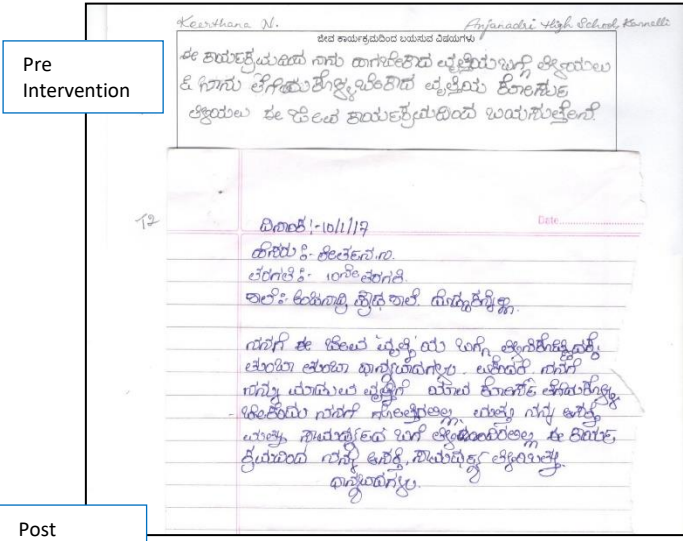 Keerthana N. Anjanadri High School Kannelli
ಜೀವ ಕಾರ್ಯಕ್ರಮದಿಂದ ಬಯಸುವ ವಿಷಯಗಳು
Pre
Intervention
ಈ ಕಾರ್ಯಕ್ರಮದಿಂದ ನಾನು ಆಗಬೇಕಾದ ವೃತ್ತಿಯ ಬಗ್ಗೆ ತಿಳಿಯಲು
& ನಾನು ತೆಗೆದುಕೊಳ್ಳಬೇಕಾದ ವೃತ್ತಿಯ ಕೋರ್ಸು
ತಿಳಿಯಲು ಈ ಜೀವ ಕಾರ್ಯಕ್ರಮದಿಂದ ಬಯಸುತ್ತೇನೆ.
T2
Date
ದಿನಾಂಕ :- 10/1/17
ಹೆಸರು :- ಕೀರ್ತನ.ಎನ.
ತರಗತಿ :- 10ನೇ ತರಗತಿ.
ಶಾಲೆ :- ಅಂಜನಾದ್ರಿ ಪ್ರೌಢ ಶಾಲೆ.
ನನಗೆ ಈ ಜೀವ ವೃತ್ತಿಯ ಬಗ್ಗೆ ತಿಳಿಸಿಕೊಟ್ಟಿದಕ್ಕೆ
ತುಂಬಾ ತುಂಬಾ ಧಾನ್ಯವಾದಗಳು. ಏಕೆಂದರೆ ನನಗೆ
ನನ್ನು ಮಾಡುವ ವೃತ್ತಿಗೆ ಯಾವ ಕೋರ್ಸ್ ತೆಗೆದುಕೊಳ್ಳ
ಬೇಕೆಂದು ನನಗೆ ಗೊತ್ತಿರಲಿಲ್ಲ ಮತ್ತು ನನ್ನ ಆಸಕ್ತಿ
ಮತ್ತು ಸಾಮರ್ಥ್ಯದ ಬಗೆ ಈ ಕಾರ್ಯ
ಕ್ರಮದಿಂದ ನನ್ನ ಆಸಕ್ತಿ, ಸಾಮರ್ಥ್ಯ ತಿಳಿಯಿತು.
ಧಾನ್ಯವಾದಗಳು.
Post